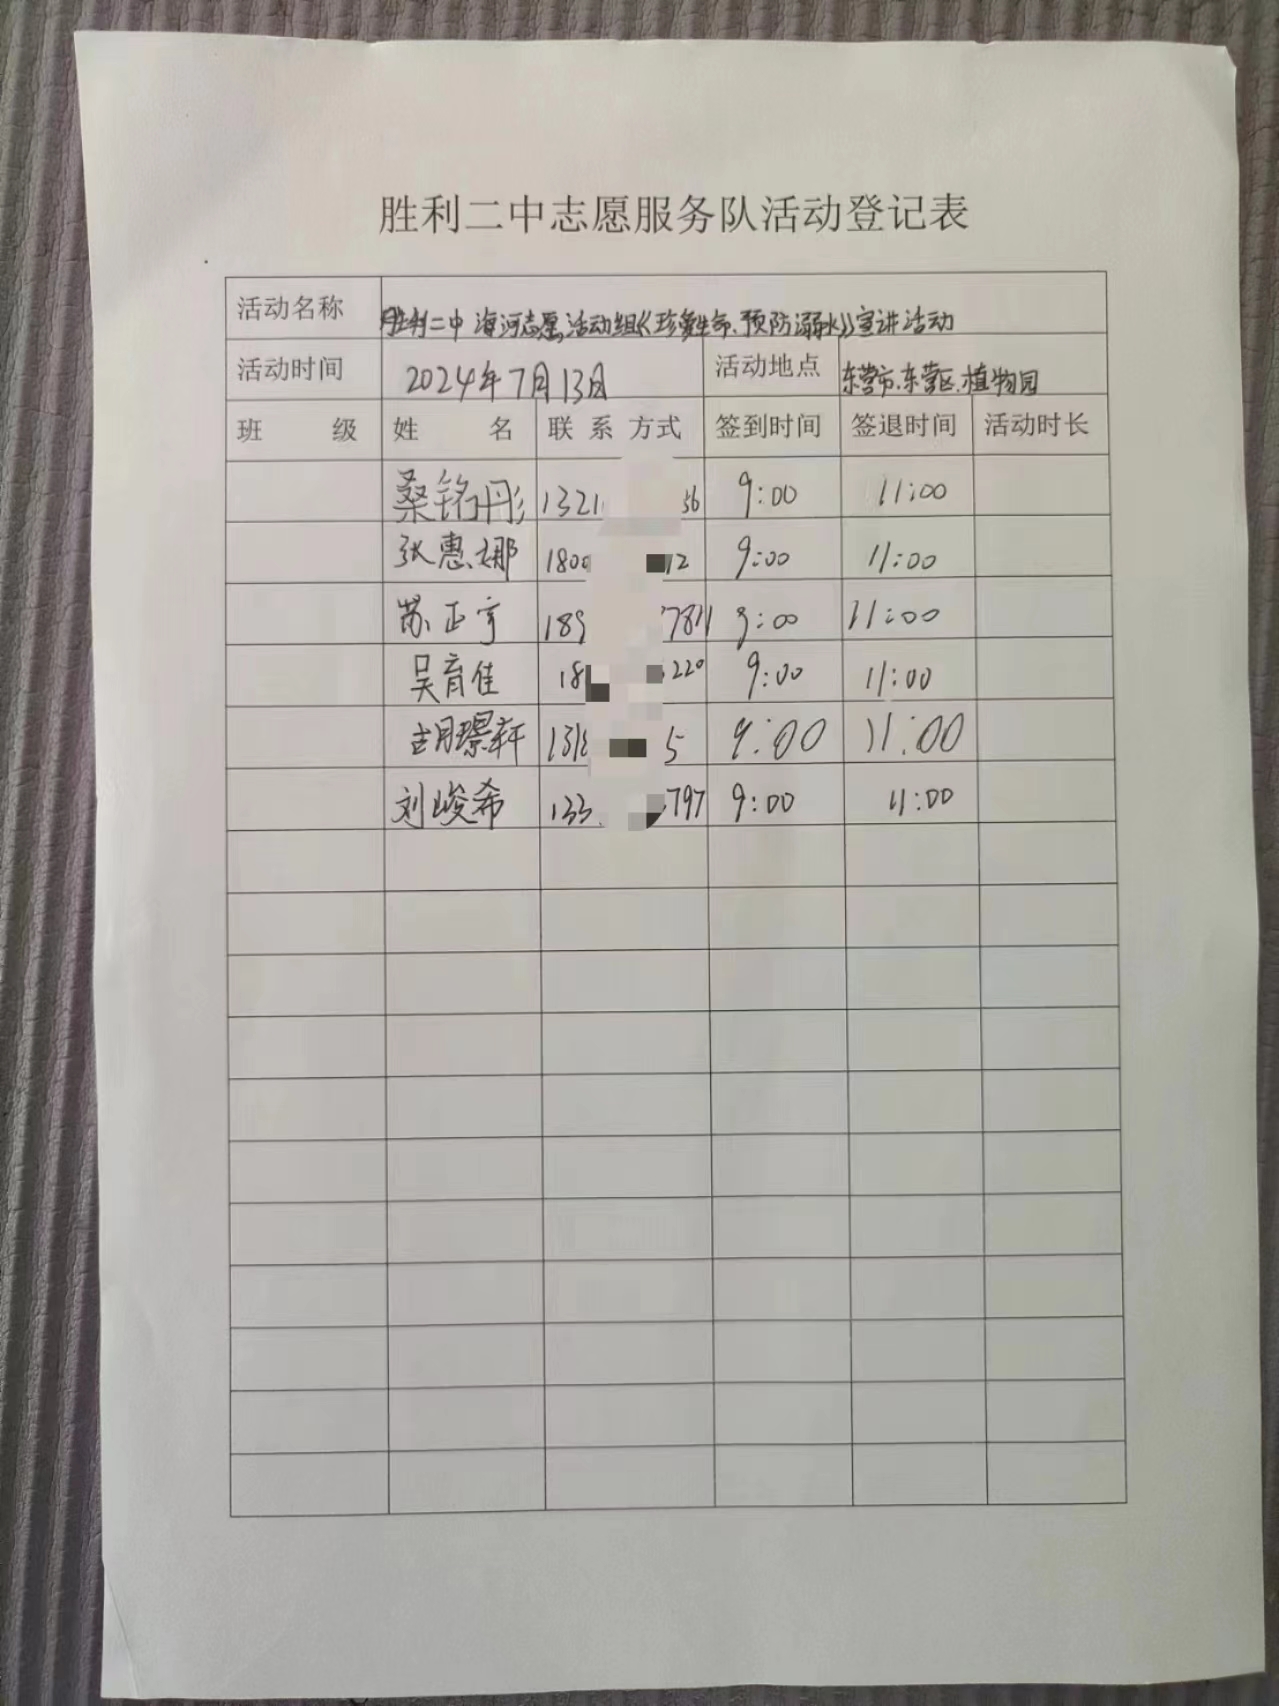 胜利二中志愿服务队活动登记表
活动名称 胜利二中 海河志愿活动组《珍爱生命、预防溺水》宣讲活动
活动时间 2024年7月13日 活动地点 东营市、东营区、植物园
班 级 姓 名 联 系 方式 签到时间 签退时间 活动时长
桑铭彤 1321 56 9:00 11:00
张惠娜 180 12 9:00 11:00
苏正宇 189 7811 9:00 11:00
吴育佳 18 220 9:00 11:00
胡璟轩 1318 5 9:00 11:00
刘峻希 133 797 9:00 11:00